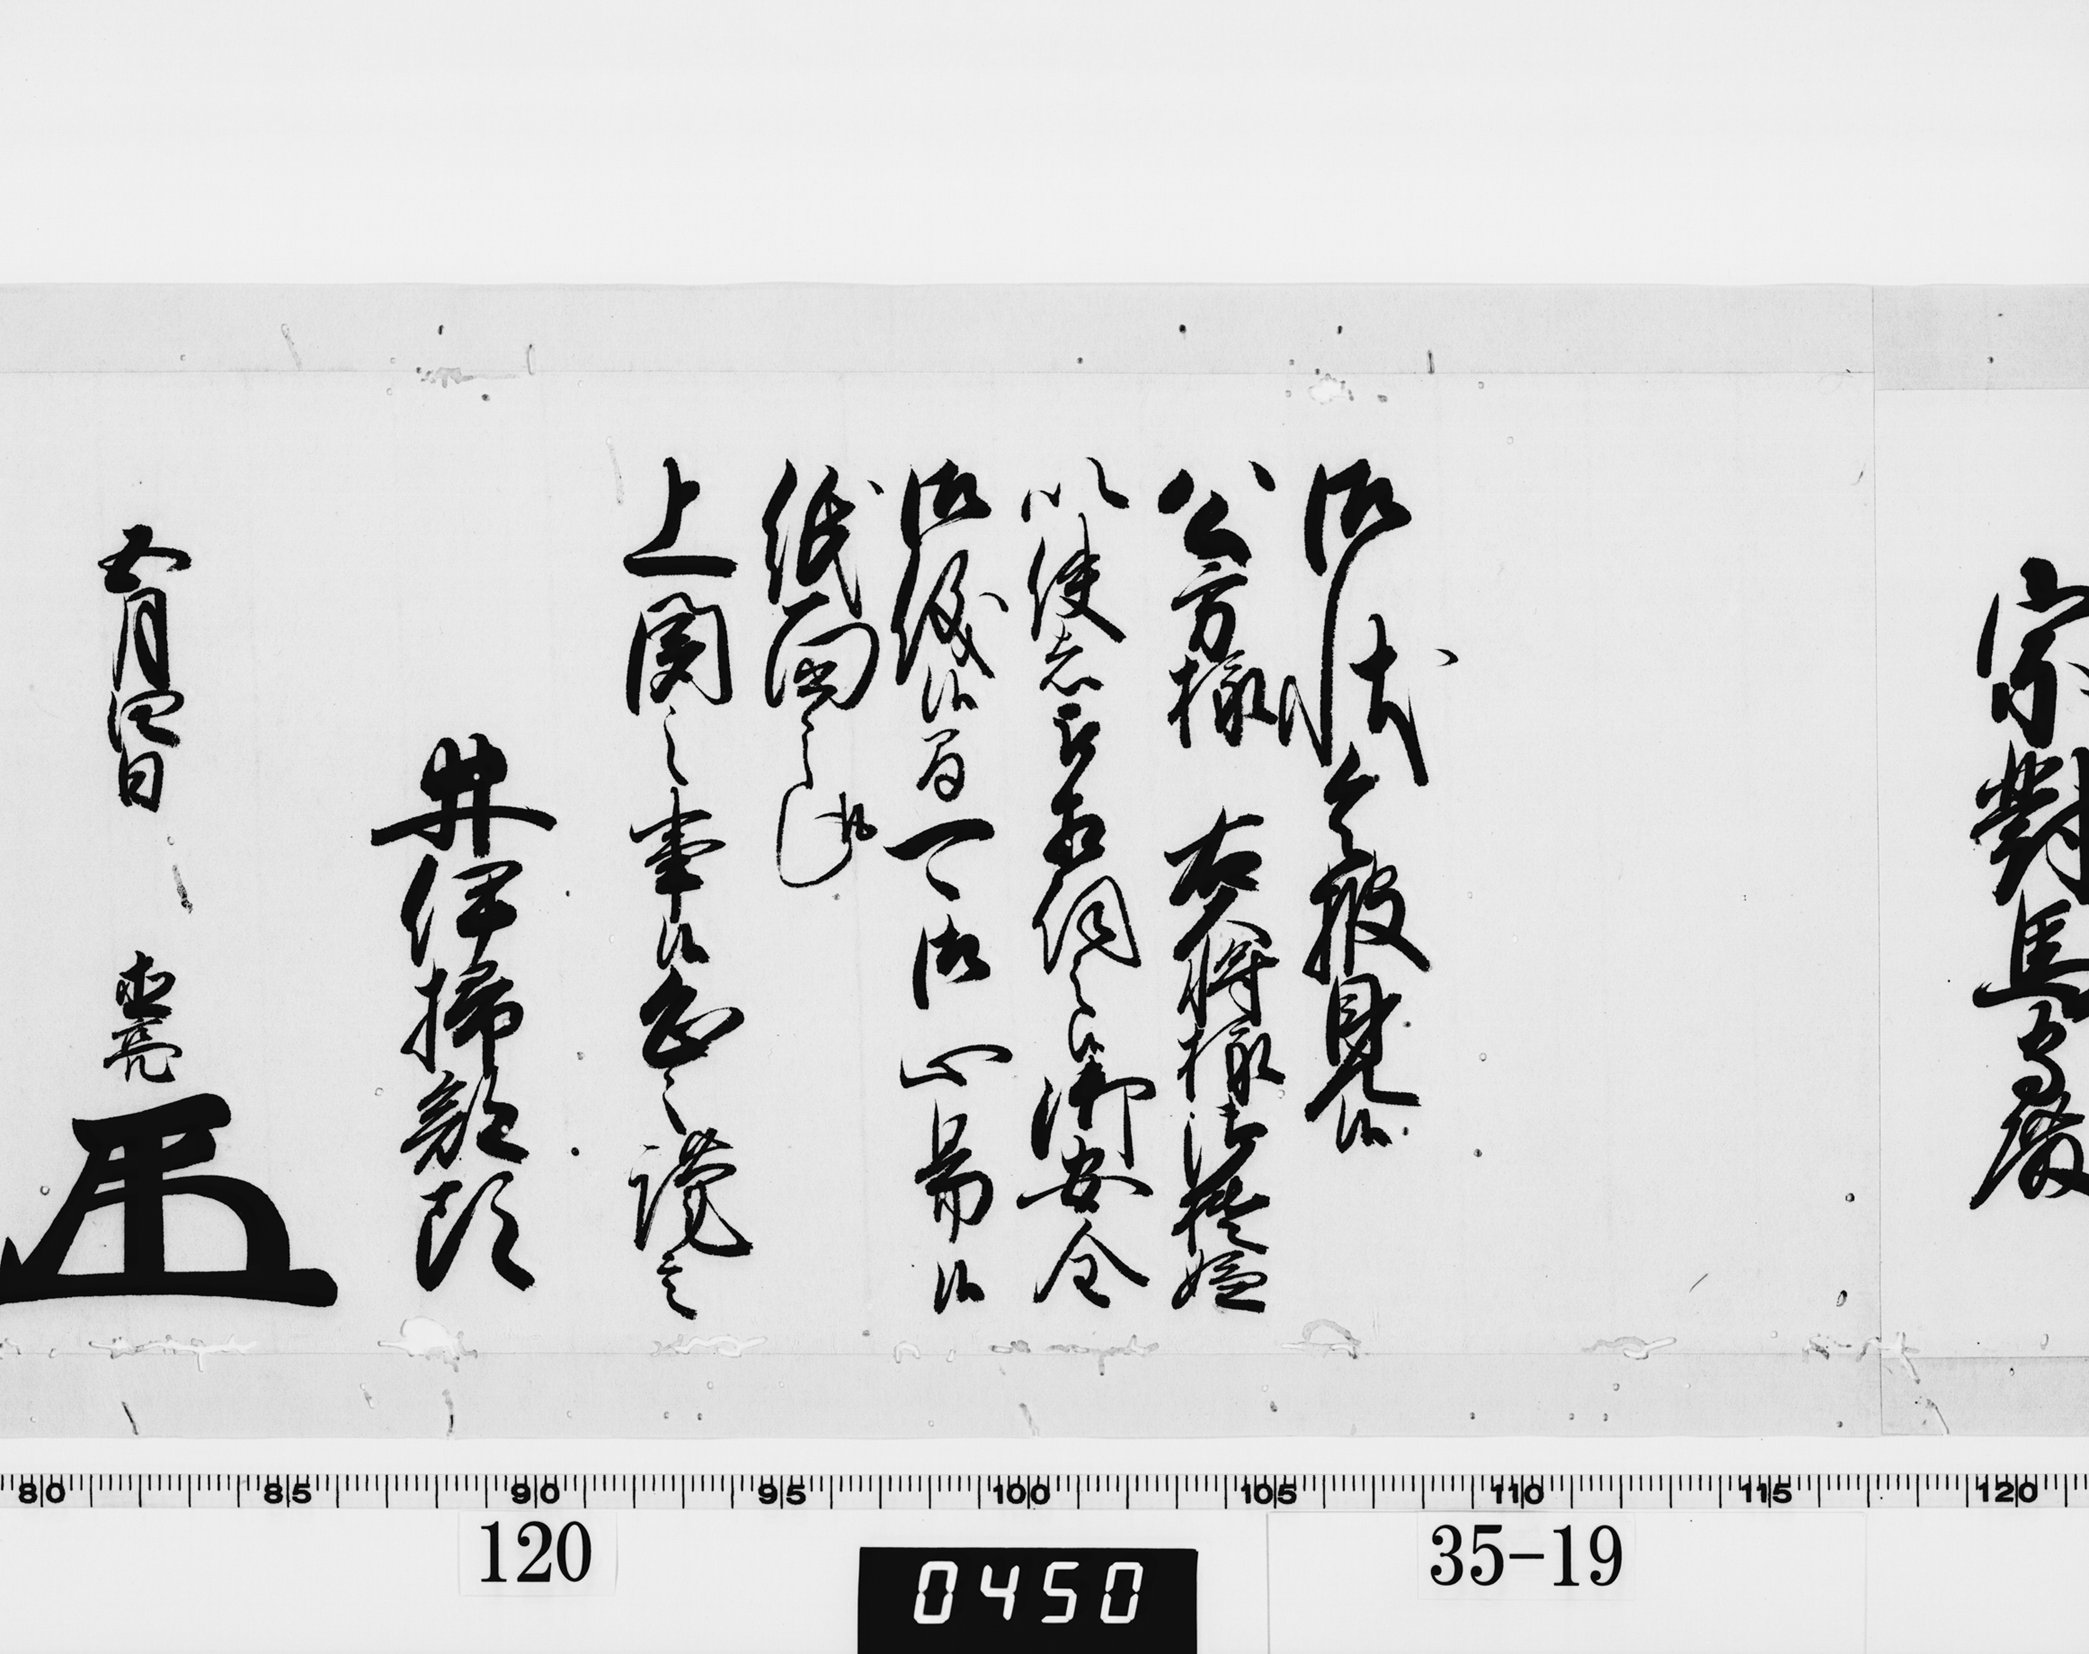 宗對馬守殿
御状令披見候
公方様 右大将様御機嫌
以使者被相伺之候御安全
御儀候間可御心易候
紙面之趣
上聞之事候恐々謹言
井伊掃部頭
五月四日 直亮
80 85 90 95 100 105 110 115 120
120
0450
35-19